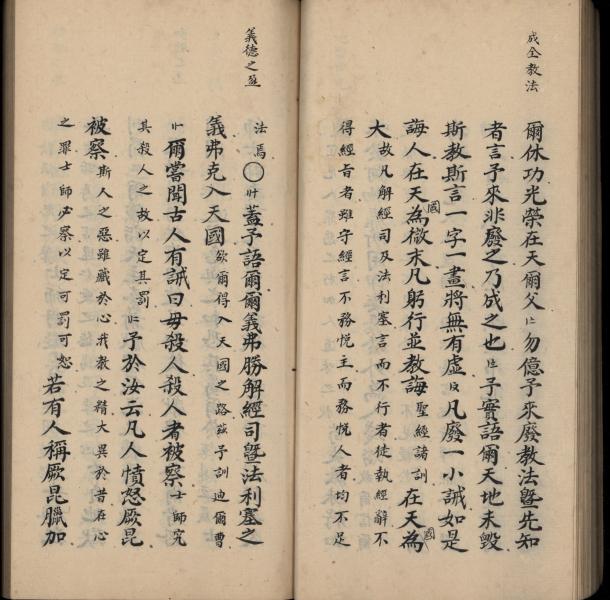 成全教法
爾休功光榮在天爾父勿億予來廢教法曁先知
者言予來非廢之乃成之也予實語爾天地未毀
斯教斯言一字一畫將無有虛凡廢一小誡如是
誨人在天國為微末凡躬行並教誨聖經諸訓在天國為
大故凡解經司及法利塞言而不行者徒執經辭不
得經旨者雖守經言不務悅主而務悅人者均不足
義德之
法焉〇蓋予語爾爾義弗勝解經司曁法利塞之
義弗克入天國欲爾得入天國之路茲予訓迪爾曹
爾嘗聞古人有誡曰毋殺人殺人者被察士師究
其殺人之故以定其罰予於汝云凡人憤怒厥昆
被察斯人之惡雖藏於心我教之精大異於昔在心
之罪士師必察以定可罰可恕若有人稱厥昆臘加